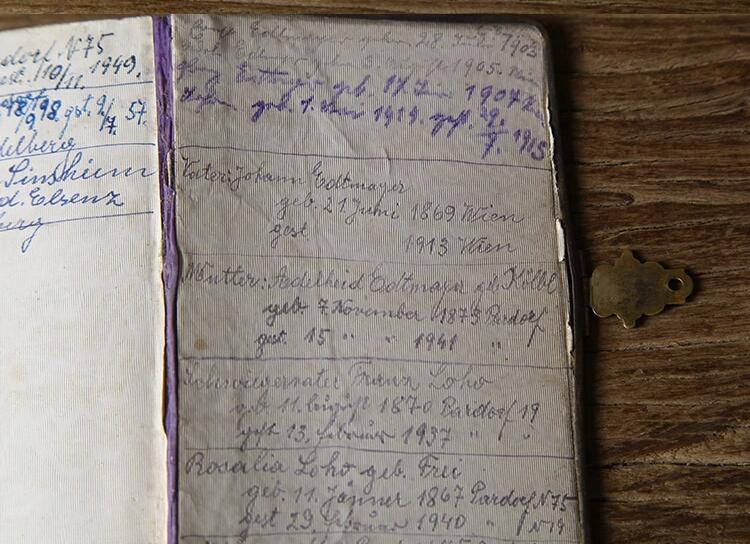 dorf N75
gest. 10/11. 1949.
98 gst. 9/7. 57.
delberg
Sinsheim
d. Elsenz
burg
geb. 28. Juni 1903
1905. Wien
geb. 17. Juni 1907
geb. 1. Juni 1914. gest. 9./7. 1915
Vater: Johann Edtmayer
geb. 21 Juni 1869 Wien
gest 1913 Wien
Mutter: Adelheid Edtmayer geb. Kölbl
geb. 7 November 1873 Pardorf
gest. 15 " " 1941 "
Schwiegervater Franz Loho
geb. 11. August 1870 Pardorf 19
gest 13. Februar 1937 " "
Rosalia Loho geb. Frei
geb. 11. Jänner 1867 Pardorf N75
gest 29. Februar 1940 " N19